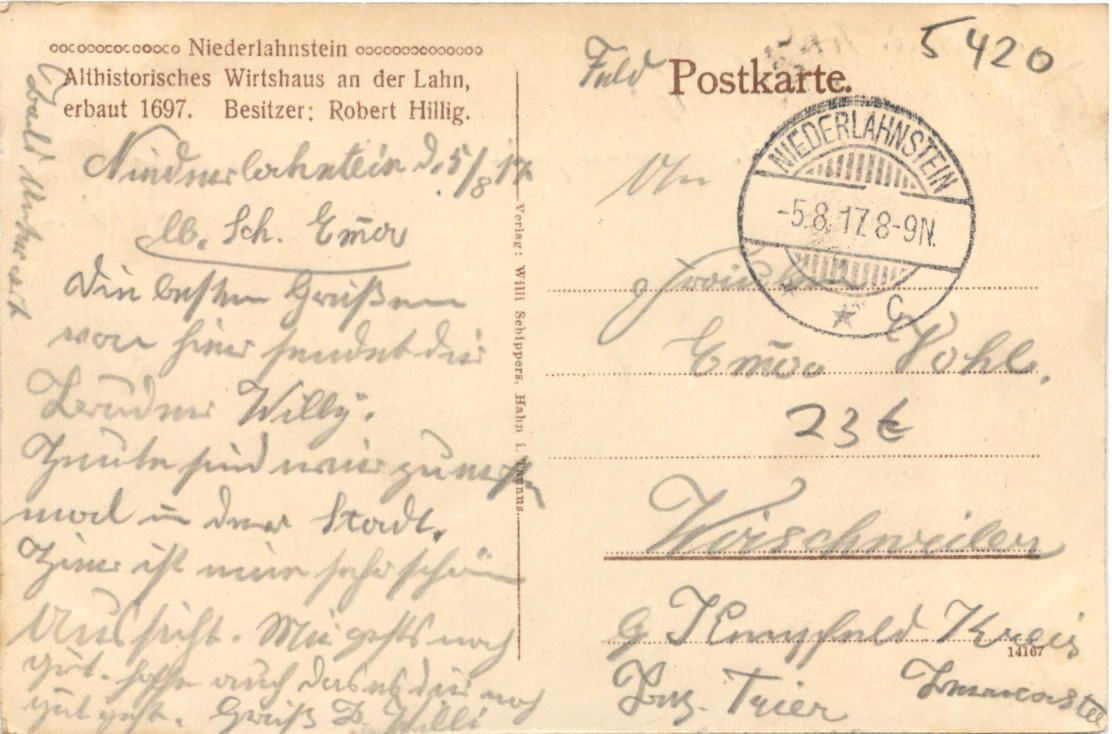 Niederlahnstein
Althistorisches Wirtshaus an der Lahn,
erbaut 1697. Besitzer: Robert Hillig.
Niederlahnstein d. 5/8 17
lb. Sch. Emma
Die besten Grüßen
von hier sendet dir
Bruder Willy.
Heute sind wir zu erst
mal in der Stadt.
Hier ist eine sehr schöne
Aussicht. Mir gehts noch
gut. hoffe auch das es dir noch
gut geht. Gruß B. Willi
Bald Antwort
Verlag: Willi Schippers, Hahn i. Taunus.
Feld
Postkarte.
5420
NIEDERLAHNSTEIN
-5.8.17.8-9N.
c
An
Fräulein
Emma Pohl.
23€
Wirschweiler
Kempfeld Kreis
14167
Bez. Trier Berncastel